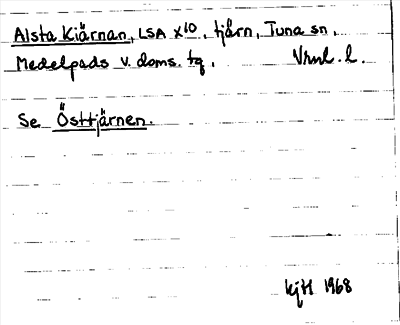 Alsta Kiärnan, LSA X10, tjärn, Tuna sn,
Medelpads v. doms. tg. Vrml. l.
Se Östtjärnen.
1968